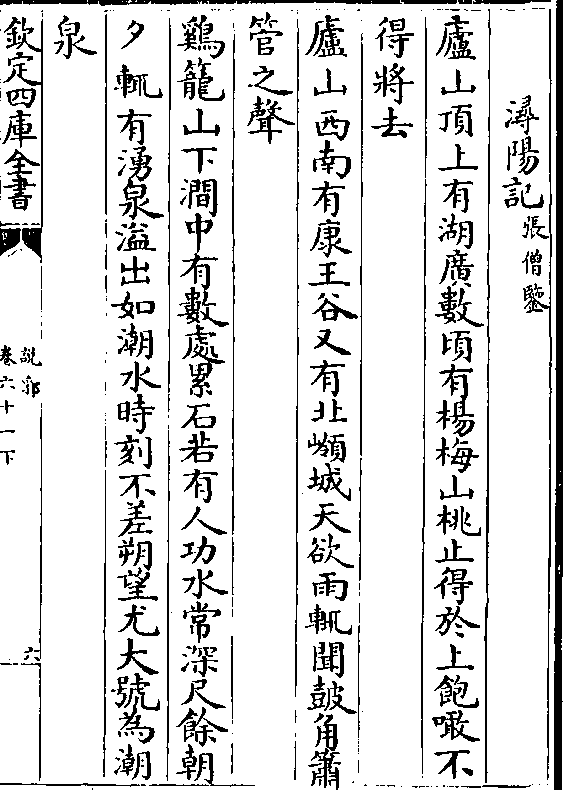 潯陽記張僧鑒
廬山頂上有湖廣數頃有楊梅山桃止得於上飽噉不
得將去
廬山西南有康王谷又有北嶺城天欲雨輒聞鼓角簫
管之聲
鷄籠山下澗中有數處累石若有人功水常深尺餘朝
夕輒有湧泉溢出如潮水時刻不差朔望尤大號為潮
泉
欽定四庫全書
說郛
卷六十一下
六